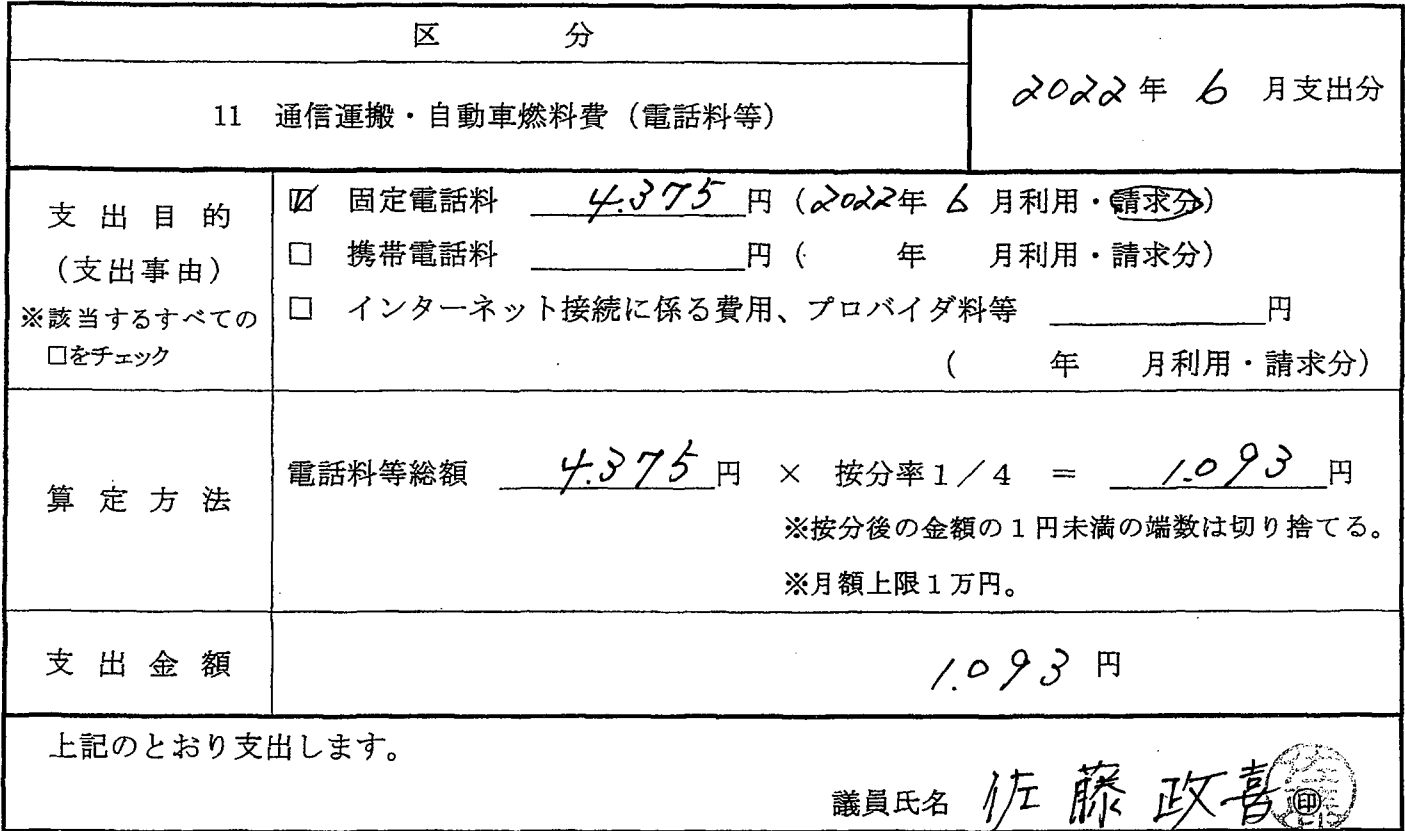 区 分
11 通信運搬・自動車燃料費（電話料等）
2022年 6 月支出分
支出目的
（支出事由）
※該当するすべての
□をチェック
☑ 固定電話料 4.375円（2022年 6 月利用・請求分）
□ 携帯電話料 円（ 年 月利用・請求分）
□ インターネット接続に係る費用、プロバイダ料等 円
（ 年 月利用・請求分）
算定方法
電話料等総額 4.375円 × 按分率１／４ ＝ 1.093円
※按分後の金額の１円未満の端数は切り捨てる。
※月額上限１万円。
支出金額
1.093円
上記のとおり支出します。
議員氏名 佐藤 政喜 ㊞